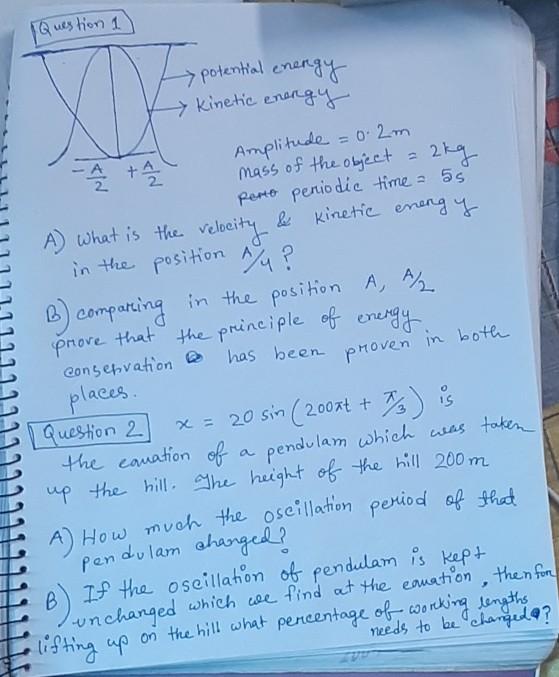 Question 1
potential energy
Kinetic energy
-A/2 +A/2
Amplitude = 0.2m
mass of the object = 2kg
periodic time = 5s
A) What is the velocity & kinetic energy
in the position A/4 ?
B) comparing in the position A, A/2
prove that the principle of energy
conservation has been proven in both
places.
Question 2 x = 20 sin (200πt + π/3) is
the equation of a pendulam which was taken
up the hill. The height of the hill 200m
A) How much the oscillation period of that
pendulam changed?
B) If the oscillation of pendulam is kept
unchanged which we find at the equation, then for
lifting up on the hill what percentage of working lengths
needs to be changed?